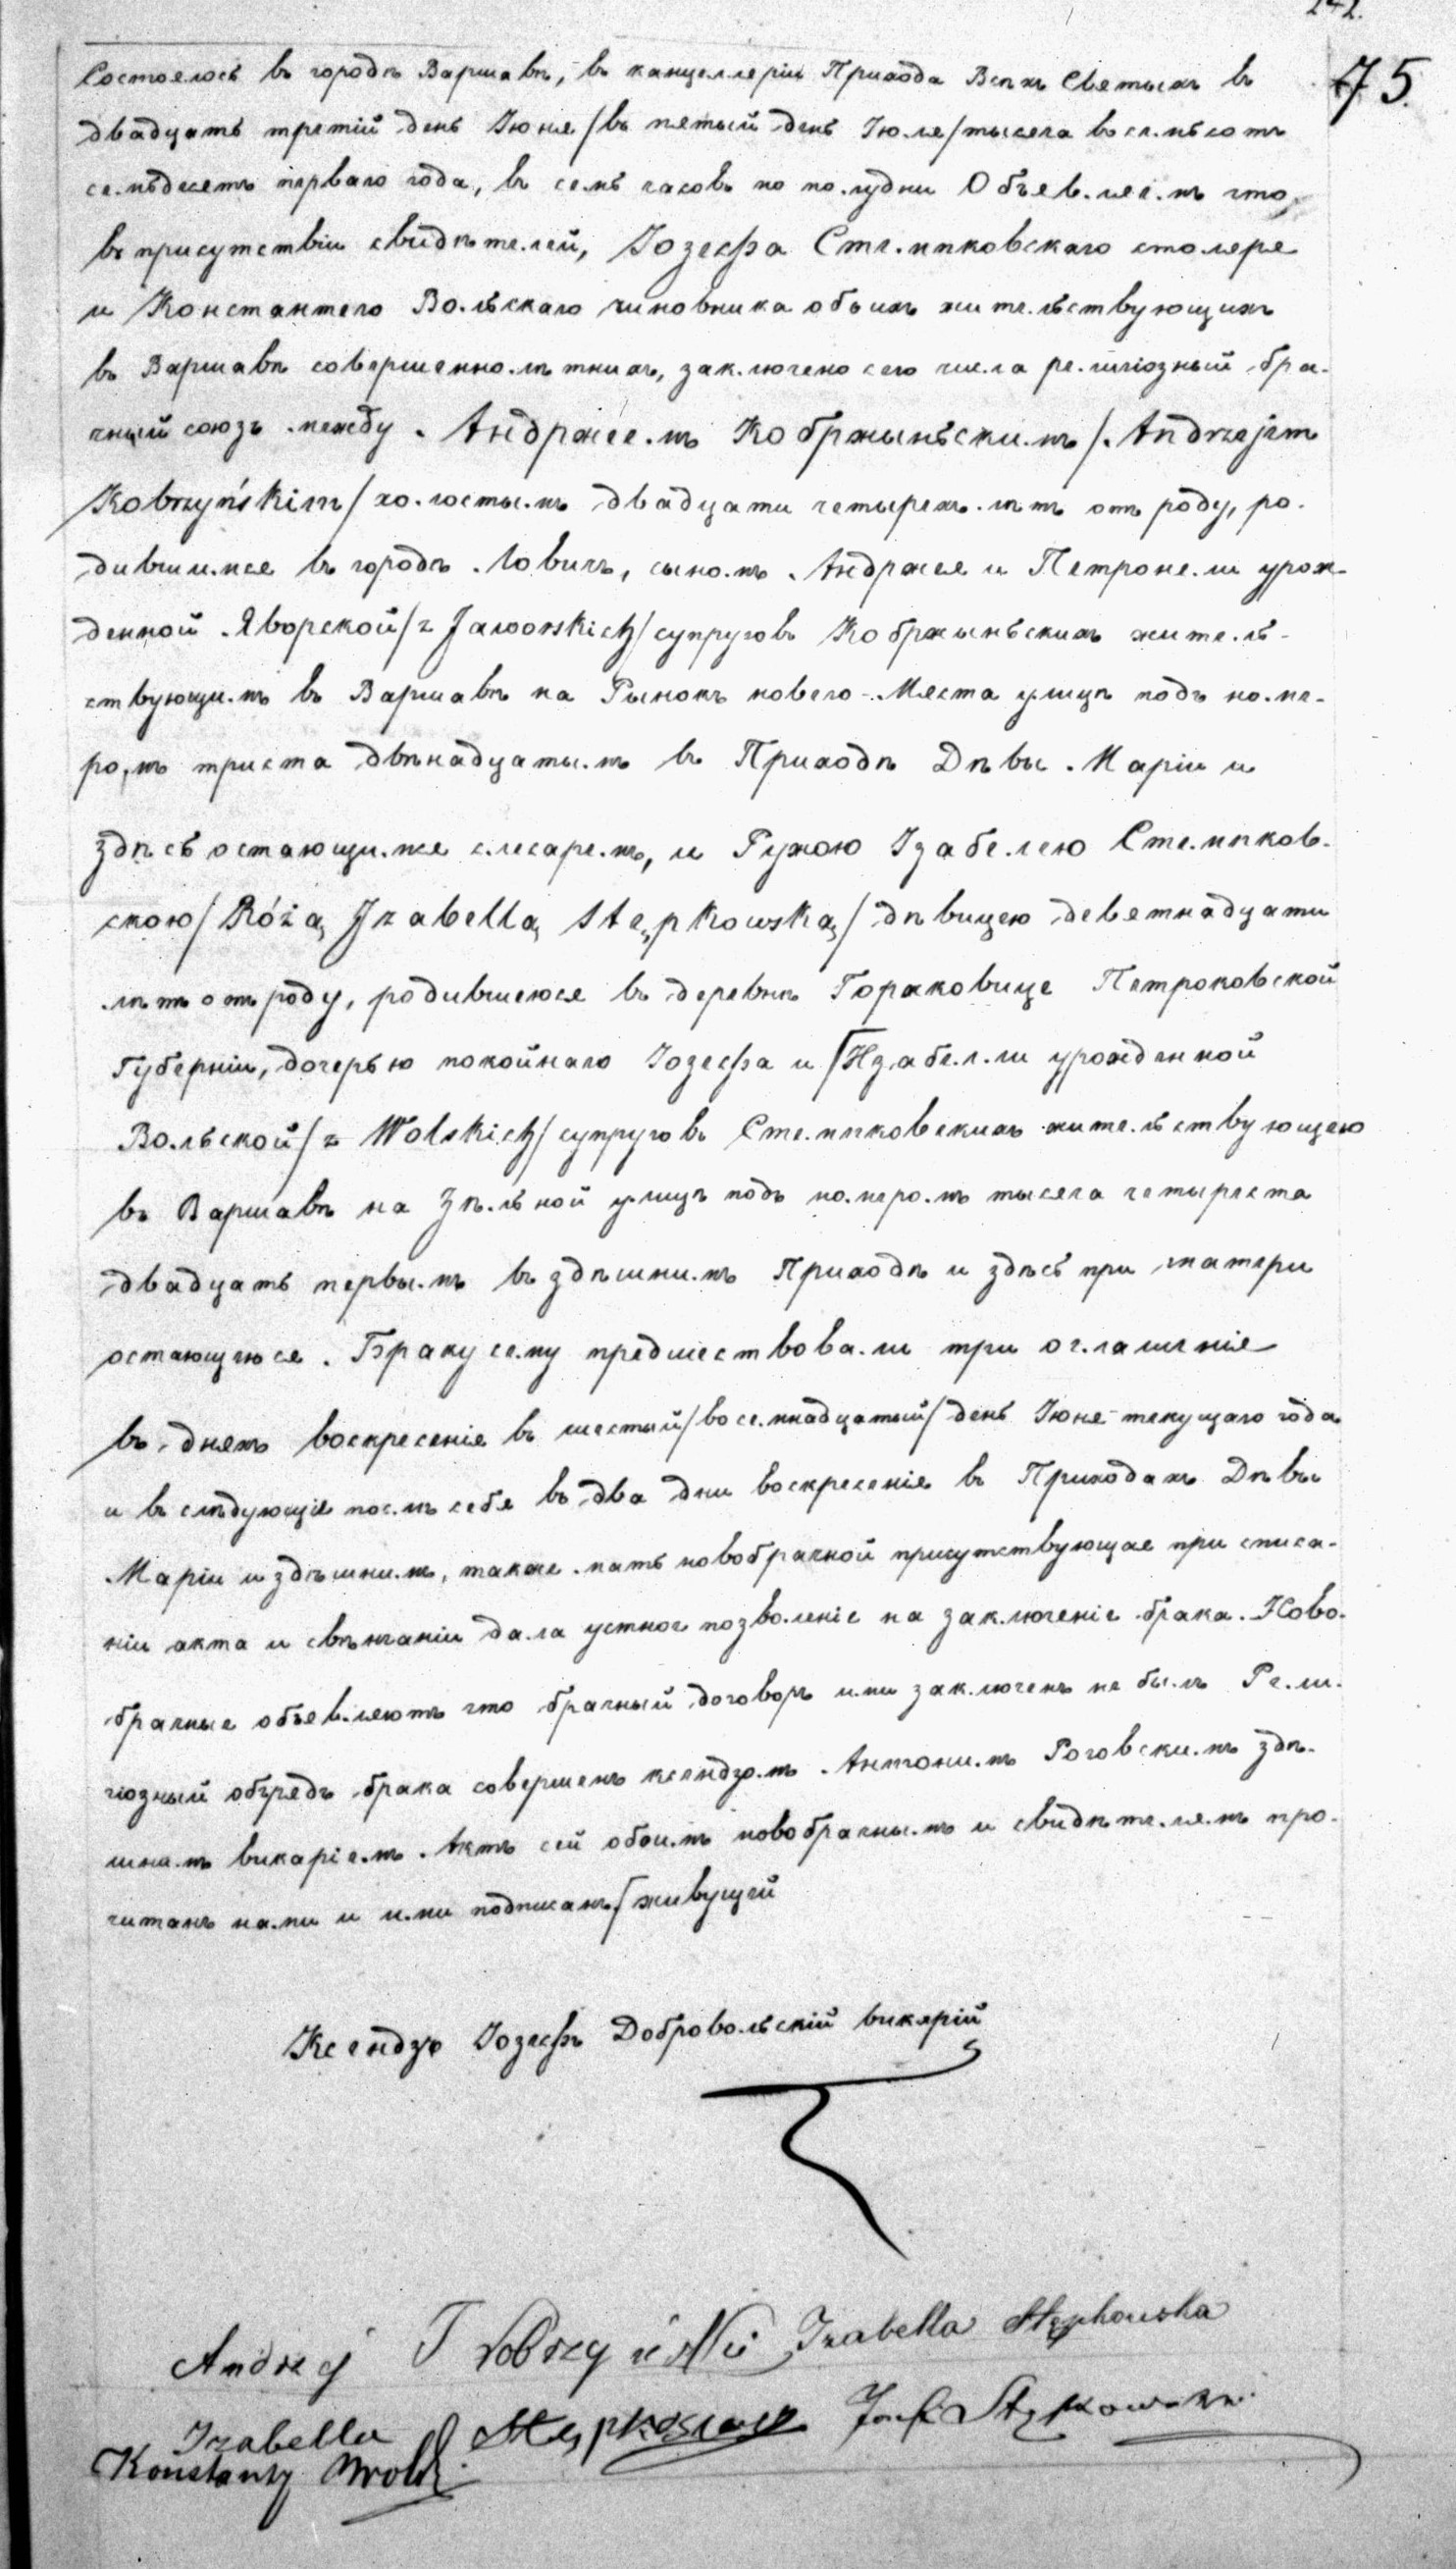 75.
Состоялось въ городѣ Варшавѣ, въ канцелляріи Прихода Всѣхъ Святыхъ въ
двадцать третій день Іюня /въ пятый день Іюля/ тысяча восемьсотъ
семьдесятъ перваго года, въ семь часовъ по полудни Объявляемъ что,
въ присутствіи свидѣтелей, Іозефа Стемпковскаго столяра
и Константего Вольскаго чиновника обоихъ жительствующихъ
въ Варшавѣ совершеннолѣтнихъ, заключено сего числа религіозный бра-
чный союзъ между Андржеемъ Кобржыньскимъ /Andrzejem
Kobrzyńskim/ холостымъ двадцати четырехъ лѣтъ отъ роду, ро-
дившимся въ городѣ Ловичъ, сыномъ Андржея и Петронели урож-
денной Яворской /z Jaworskich/ супруговъ Кобржыньскихъ житель-
ствующимъ въ Варшавѣ на Рынокъ новего-Мяста улицѣ подъ номе-
ромъ триста двѣнадцатымъ въ Приходѣ Дѣвы Маріи и
здѣсь остающимся слесаремъ, и Ружою Изабелею Стемпков-
скою /Różą Izabellą Stępkowską/ дѣвицею девятнадцати
лѣтъ отъ роду, родившеюся въ деревнѣ Горжковице Петроковской
Губерніи, дочерью покойнаго Іозефа и ⌈Изабелли урожденной
Вольской /z Wolskich/ супруговъ Стемпковскихъ жительствующею
въ Варшавѣ на Зѣльной улицѣ подъ номеромъ тысяча четыреста
двадцать первымъ въ здѣшнимъ Приходѣ и здѣсь при матери
остающеюся. Браку сему предшествовали три оглашенія
въ дняхъ воскресенія въ шестый /восемнадцатый/ день Іюня текущаго года
и въ слѣдующіе послѣ себя въ два дни воскресенія въ Приходахъ Дѣвы
Маріи и здѣшнимъ, также мать новобрачной присутствующая при списа-
ніи акта и свѣнчаніи дала устное позволеніе на заключеніе брака. Ново-
брачные объявляютъ что брачный договоръ ими заключенъ не былъ Рели-
гіозный обрядъ брака совершенъ ксендзомъ Антонимъ Роговскимъ здѣ-
шнамъ викаріемъ. Актъ сей обоимъ новобрачнымъ и свидѣтелямъ про-
читанъ нами и ими подписанъ ⌈живущей
Ксендзъ Іозефъ Добровольскій викарій
Andrzej Kobrzyński Izabella Stępkowska
Izabella Stępkowska Józef Stępkowski
Konstanty Wolski